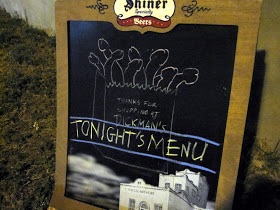 Shiner
Specialty
Beers
THANKS FOR
SHOPPING AT
TUCKMAN'S
TONIGHT'S MENU